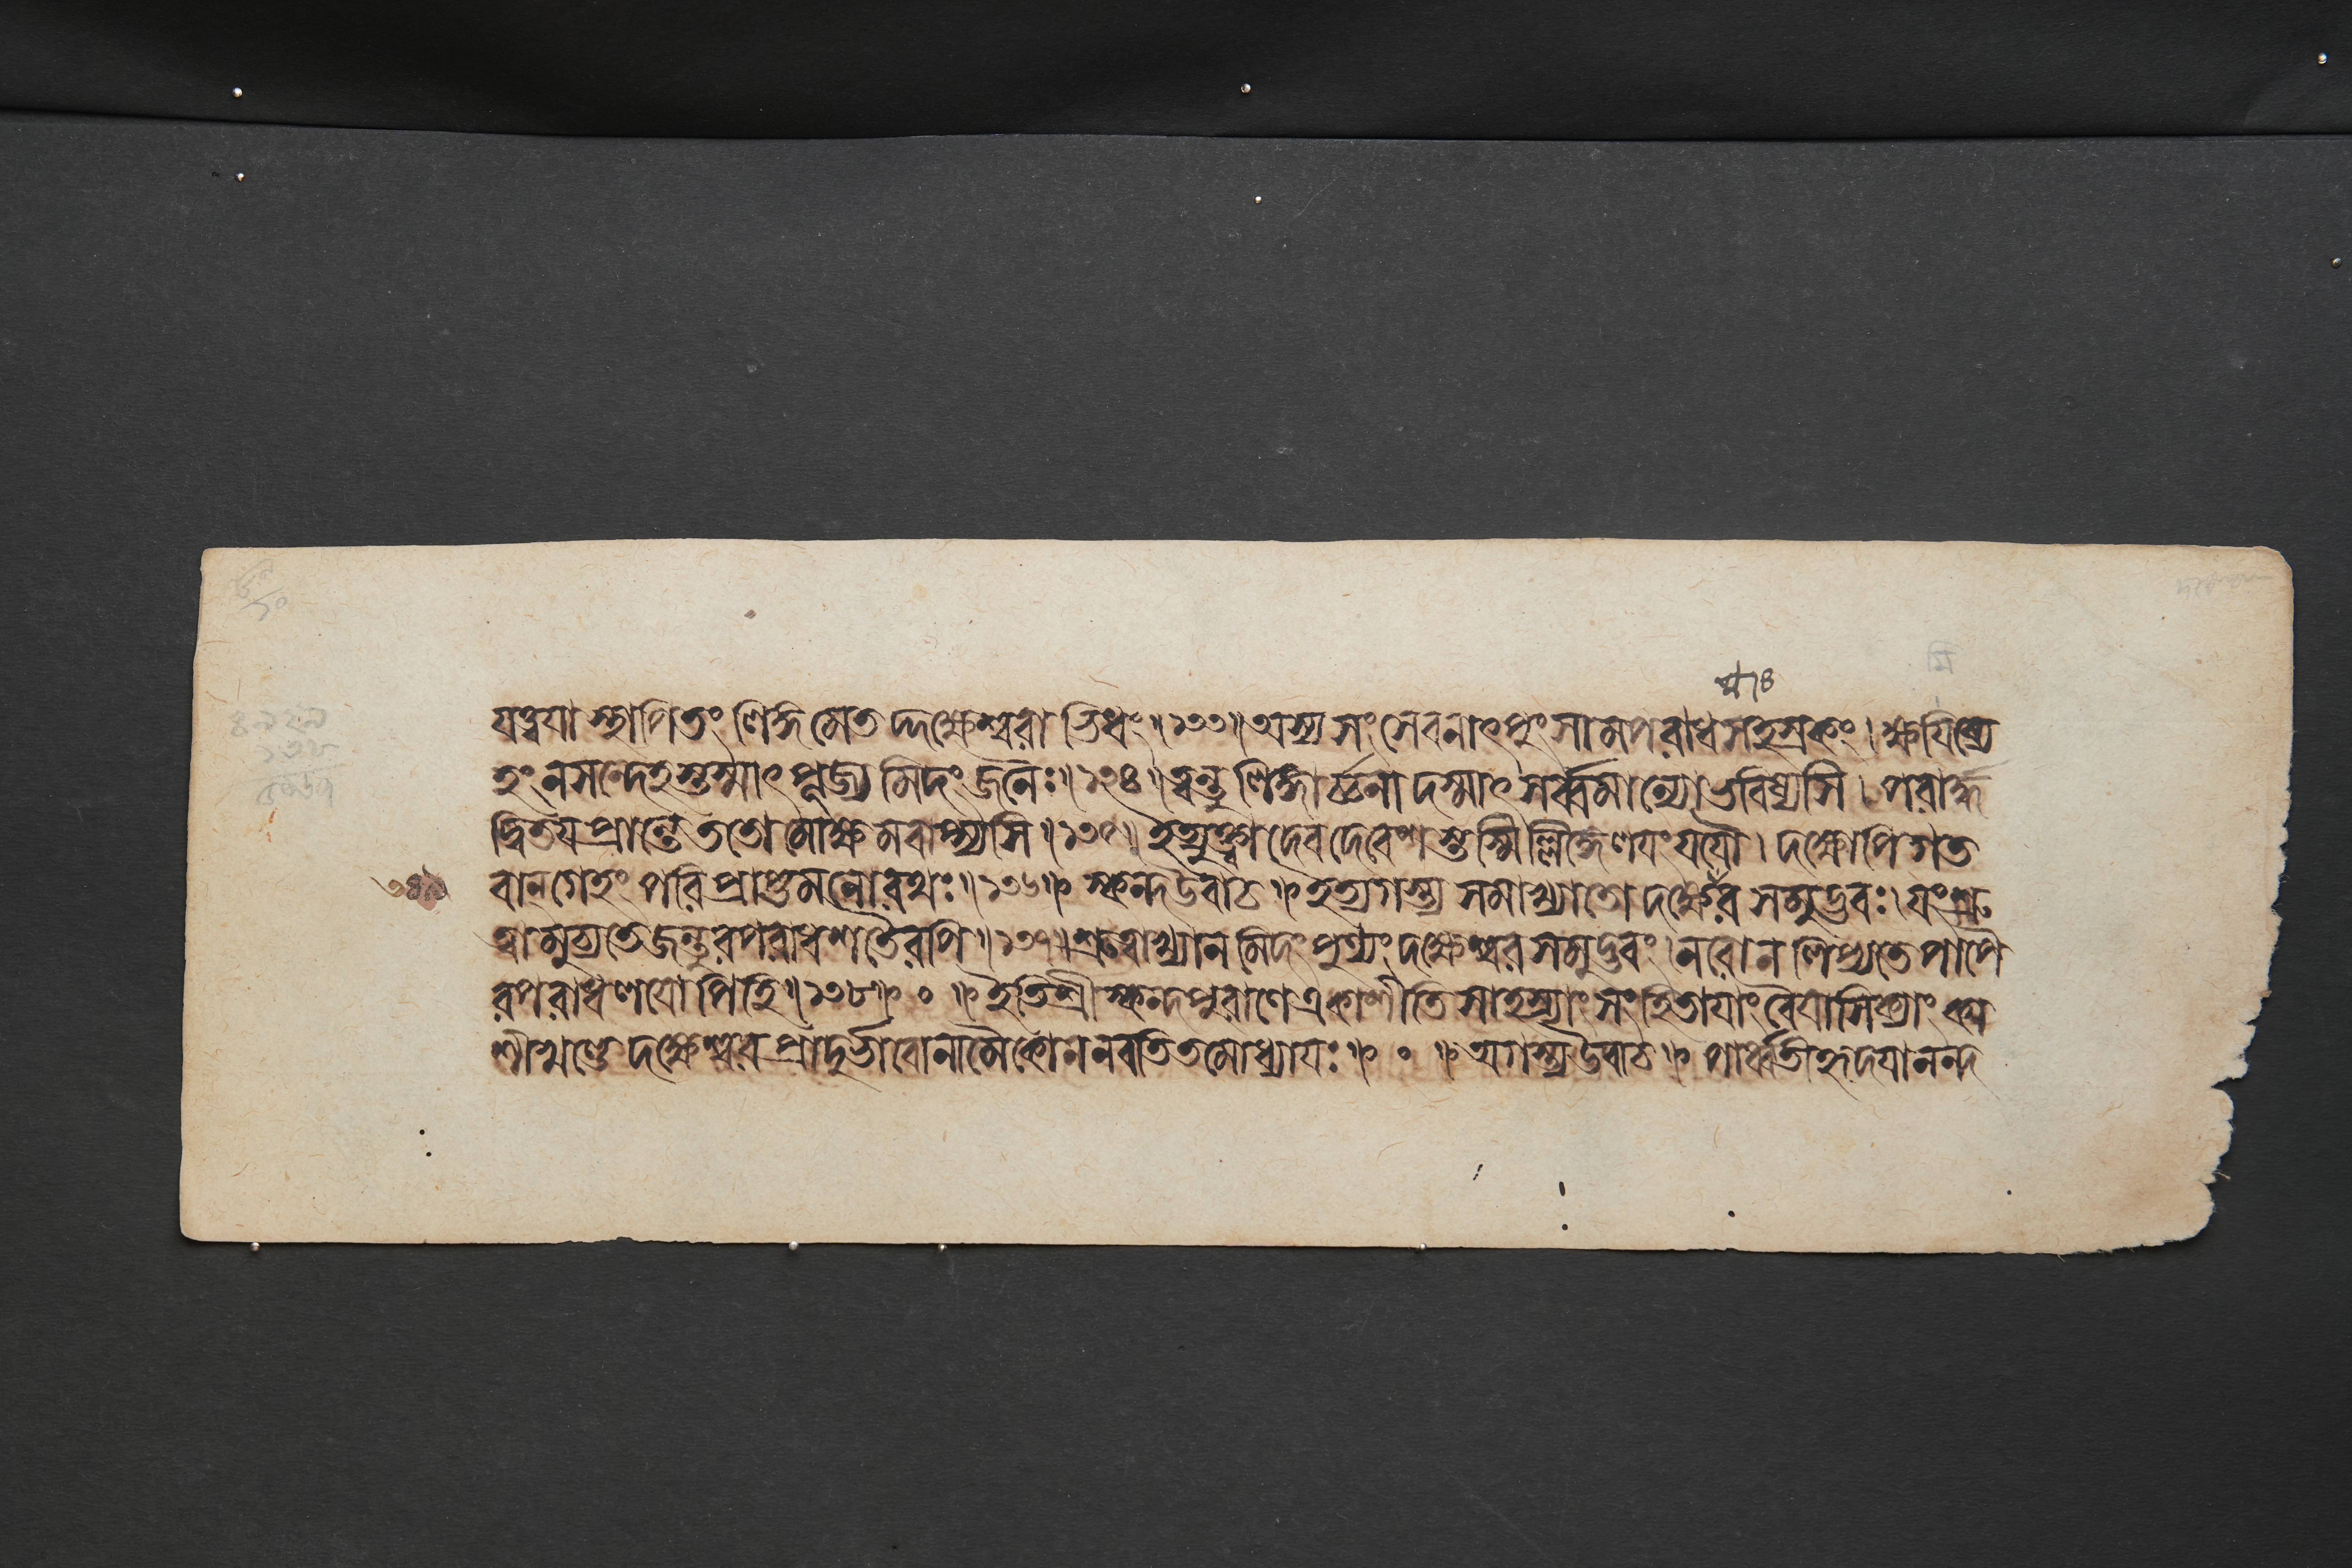 ষ ৷৪
যত্ত্বযা স্থাপিতং লিঙ্গমেতদ্দক্ষেশ্বরাভিধং॥১৩৩॥অস্য সংসেবনাৎপুংসামপরাধসহস্রকং।ক্ষযিষ্যে
হং নসন্দেহস্তস্মাৎ পূজ্যমিদং জনৈঃ॥১৩৪॥ত্বন্তু লিঙ্গার্চ্চনাদস্মাৎ সর্ব্বমান্যো ভবিষ্যসি। পরার্দ্ধ
দ্বিতযপ্রান্তে ততো মোক্ষমবাপ্স্যসি॥১৩৫॥ইত্যুক্ত্বা দেবদেবেশস্তস্মিল্লিঙ্গেলযংযযৌ। দক্ষোপি গত
বান্গেহং পরিপ্রাপ্তমনোরথঃ॥১৩৬॥ স্কন্দউবাচ॥ ইত্যগস্ত্য সমাখ্যাতো দক্ষেশ্বর সমুদ্ভবঃ। যংশ্রু
ত্বামুচ্যতেজন্তুরপরাধশতৈরপি॥১৩৭॥শ্রুত্বাখ্যানমিদং পুণ্যং দক্ষেশ্বরসমুদ্ভবং। নরোন লিপ্যতে পাপৈ
রপরাধলযোপিহি॥১৩৮॥ ০ ॥ইতিশ্রীস্কন্দপুরাণে একাশীতিসাহস্র্যাং সংহিতাযাং বৈযাসিক্যাং কা
শীখণ্ডে দক্ষেশ্বরপ্রাদুর্ভাবোনামৈকোননবতিতমোধ্যাযঃ॥ ০ ॥অগস্ত্যউবাচ॥ পার্ব্বতীহৃদযানন্দ